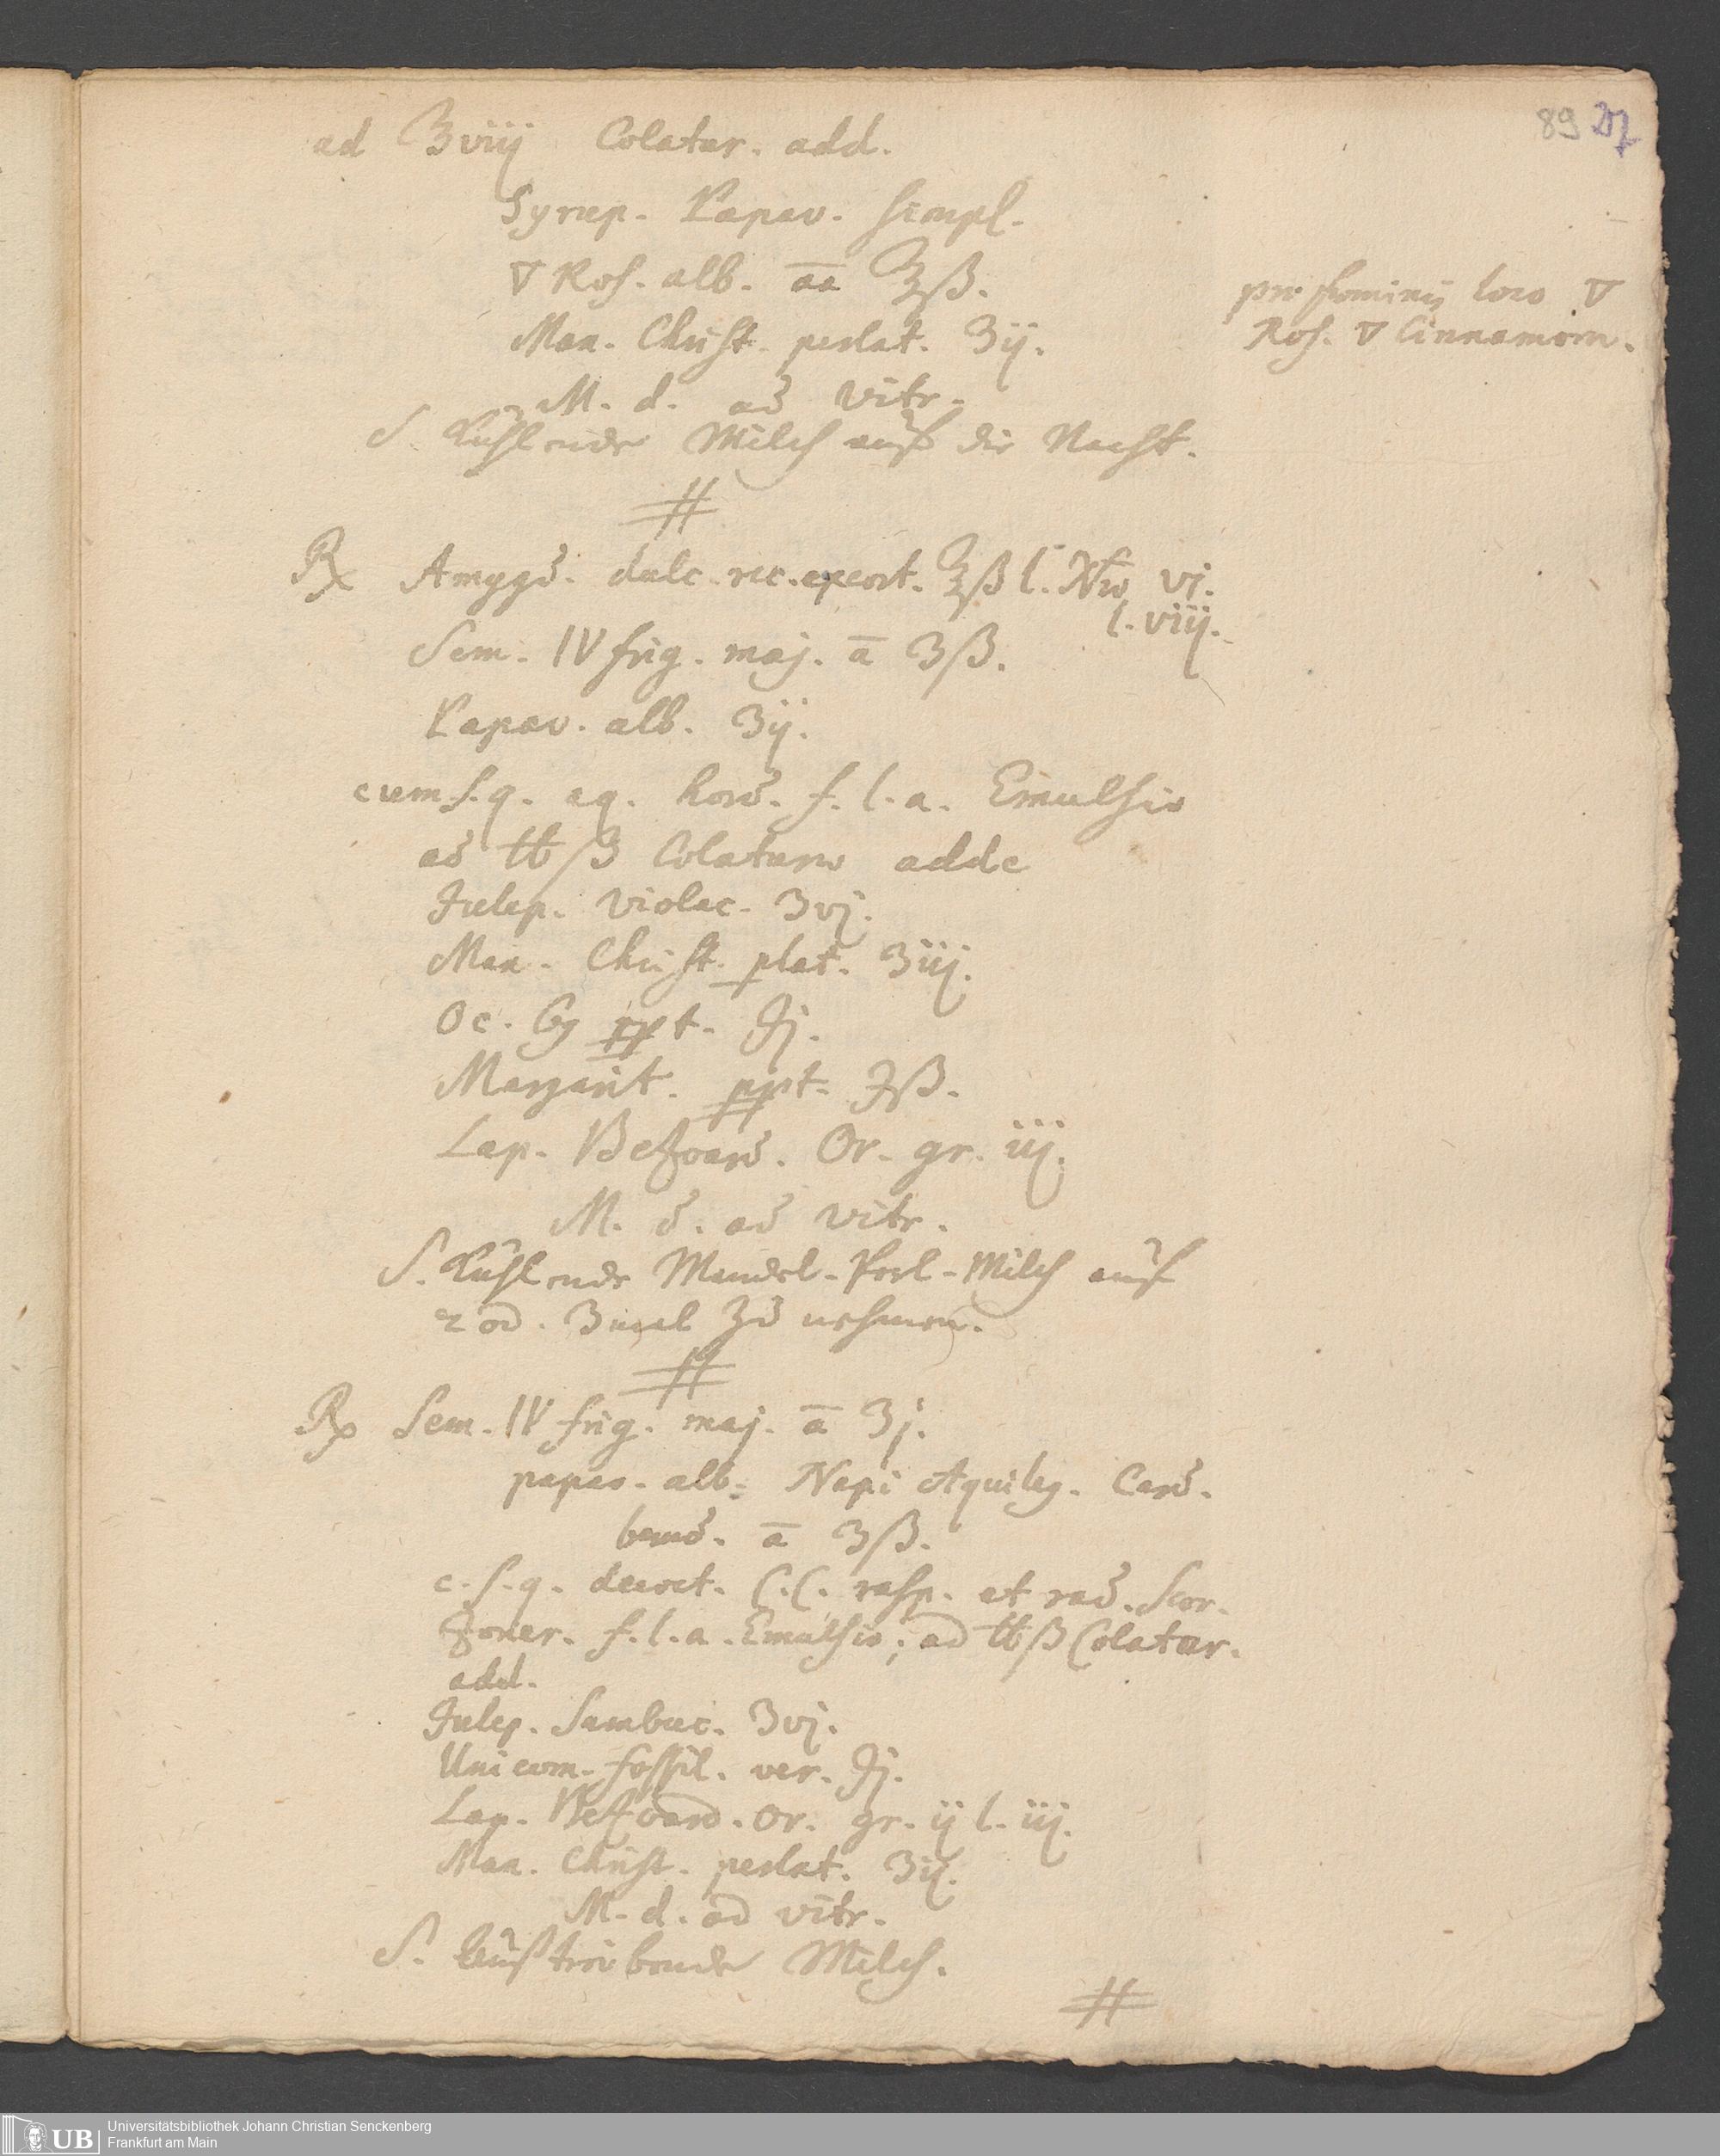 89 207
ad ℥viij Colatur. add.
Syrup. Papav. simpl.
🜄 Ros. alb. aa ℥ß.
Man. Christ. perlat. ʒij.
M. d. ad vitr.
S. Kühlende Milch auf die Nacht.
#
pro fœminis loco 🜄
Ros. 🜄 Cinnamom.
℞ Amygd. dulc. rec. excort. ℥ß l. No vj.
l. viij.
Sem. IV frig. maj. a ʒß.
Papav. alb. ʒij.
cum s. q. aq. hord. f. l. a. Emulsio
ad ℔ß Colaturæ adde
Julep. Violac. ʒvj.
Man. Christ. plat. ʒiij.
Oc. 69 ppt. ℈j.
Margarit. ppt. ℈ß.
Lap. Bezoard. Or. gr. iij.
M. d. ad vitr.
S. Kühlende Mandel-Perl-Milch auf
2 od. 3 mal zu nehmen.
#
℞ Sem. IV frig. maj. a ʒj.
papav. alb. Napi Aquileg. Card.
bened. a ʒß.
c. s. q. decoct. C. C. rasp. et rad. Scor-
zoner. f. l. a. Emulsio; ad ℔ß Colatur.
add.
Julep. Sambuc. ʒvj.
Unicorn. fossil. ver. ℈j.
Lap. Bezoard. Or. gr. ij l. iij.
Man. Christ. perlat. ʒij.
M. d. ad vitr.
S. Außtreibende Milch.
#
UB Universitätsbibliothek Johann Christian Senckenberg
Frankfurt am Main